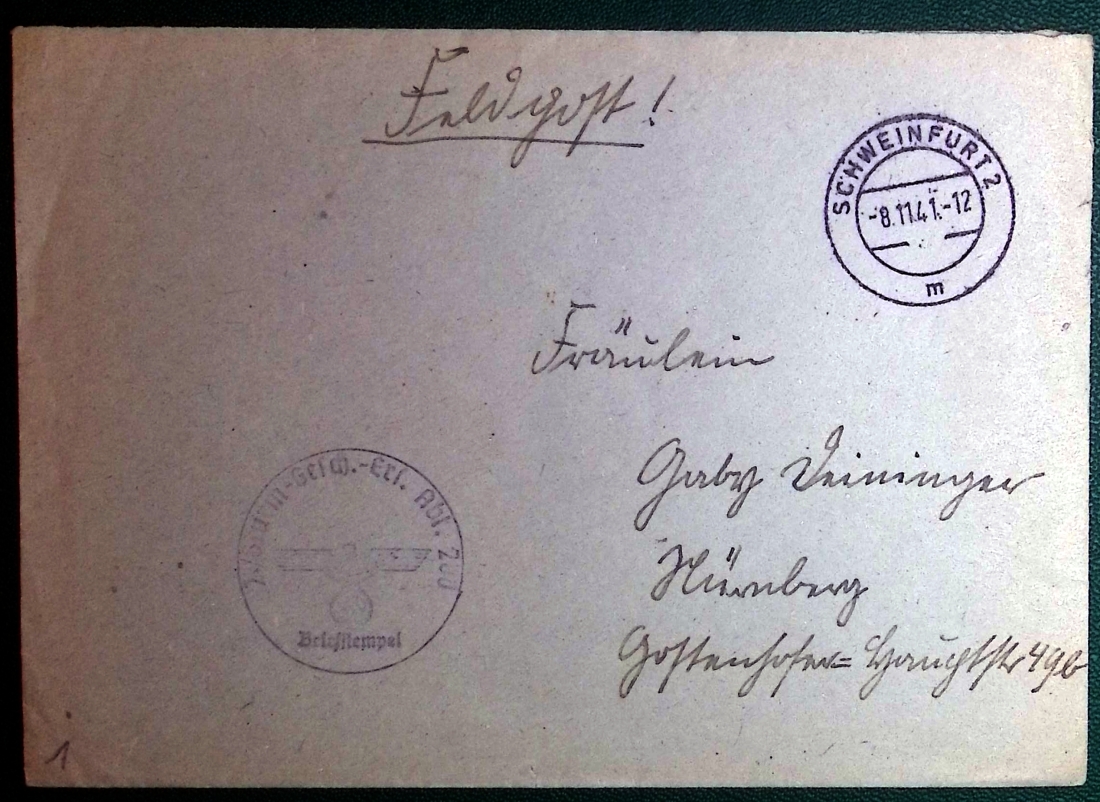 Feldpost!
SCHWEINFURT 2
-8.11.41.-12
m
Fräulein
Gaby Deininger
Nürnberg
Gostenhofer= Hauptstr 49b
Sturm-Gesch.-Ers. Abt. 200
Briefstempel
1